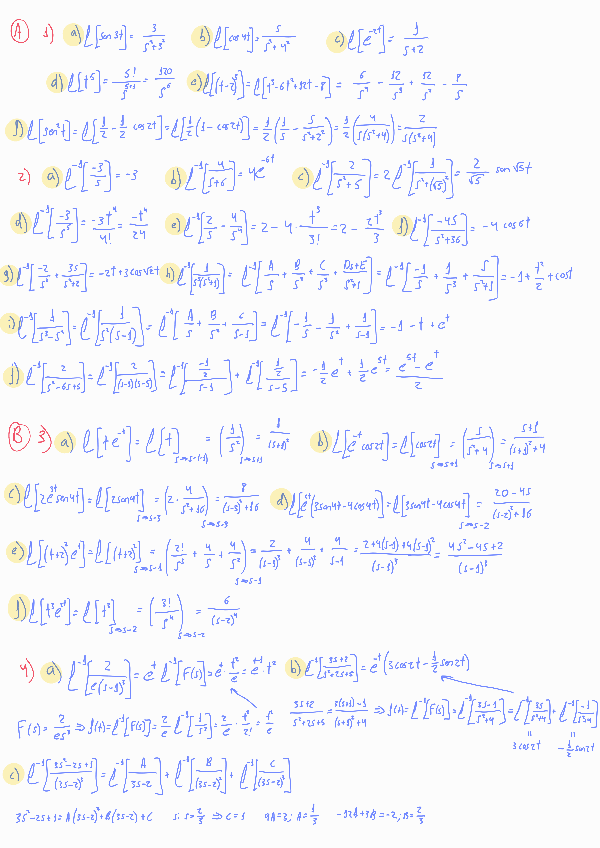 A 1) a) L[sen 3t] = 3/(s²+3²) b) L[cos 4t] = s/(s²+4²) c) L[e^(-2t)] = 1/(s+2)
d) L[t⁵] = 5!/s^(5+1) = 120/s⁶ e) L[(t-2)³] = L[t³-6t²+12t-8] = 6/s⁴ - 12/s³ + 12/s² - 8/s
f) L[sen²t] = L[1/2 - 1/2 cos2t] = L[1/2(1-cos2t)] = 1/2(1/s - s/(s²+2²)) = 1/2(4/(s(s²+4))) = 2/(s(s²+4))
2) a) L⁻¹[-3/s] = -3 b) L⁻¹[4/(s+6)] = 4e^(-6t) c) L⁻¹[2/(s²+5)] = 2L⁻¹[1/(s²+(√5)²)] = 2/√5 sen√5t
d) L⁻¹[-3/s⁵] = -3t⁴/4! = -t⁴/24 e) L⁻¹[2/s - 4/s⁴] = 2-4·t³/3! = 2 - 2t³/3 f) L⁻¹[-4s/(s²+36)] = -4cos6t
g) L⁻¹[-2/s² + 3s/(s²+2)] = -2t+3cos√2t h) L⁻¹[1/(s³(s²+1))] = L⁻¹[A/s + B/s² + C/s³ + (Ds+E)/(s²+1)] = L⁻¹[-1/s + 1/s³ + s/(s²+1)] = -1 + t²/2 + cost
i) L⁻¹[1/(s³-s²)] = L⁻¹[1/(s²(s-1))] = L⁻¹[A/s + B/s² + C/(s-1)] = L⁻¹[-1/s - 1/s² + 1/(s-1)] = -1 - t + e^t
j) L⁻¹[2/(s²-6s+5)] = L⁻¹[2/((s-1)(s-5))] = L⁻¹[(-1/2)/(s-1)] + L⁻¹[(1/2)/(s-5)] = -1/2 e^t + 1/2 e^(5t) = (e^(5t) - e^t)/2
B 3) a) L[te^(-t)] = L[t] s→s-(-1) = (1/s²) s→s+1 = 1/(s+1)² b) L[e^(-t)cos2t] = L[cos2t] s→s+1 = (s/(s²+4)) s→s+1 = (s+1)/((s+1)²+4)
c) L[2e^(3t)sen4t] = L[2sen4t] s→s-3 = (2·4/(s²+16)) s→s-3 = 8/((s-3)²+16) d) L[e^(2t)(3sen4t-4cos4t)] = L[3sen4t-4cos4t] s→s-2 = (20-4s)/((s-2)²+16)
e) L[(t+2)²e^t] = L[(t+2)²] s→s-1 = (2!/s³ + 4/s + 4/s²) s→s-1 = 2/(s-1)³ + 4/(s-1)² + 4/(s-1) = (2+4(s-1)+4(s-1)²)/(s-1)³ = (4s²-4s+2)/(s-1)³
f) L[t³e^(2t)] = L[t³] s→s-2 = (3!/s⁴) s→s-2 = 6/(s-2)⁴
4) a) L⁻¹[2/(e(s-1)³)] = e^t L⁻¹[F(s)] = e^t t²/e = e^(t-1)·t² b) L⁻¹[(3s+2)/(s²+2s+5)] = e^(-t)(3cos2t - 1/2 sen2t)
F(s) = 2/(es³) ⇒ f(t) = L⁻¹[F(s)] = 2/e L⁻¹[1/s³] = 2/e · t²/2! = t²/e (3s+2)/(s²+2s+5) = (3(s+1)-1)/((s+1)²+4) ⇒ f(t) = L⁻¹[F(s)] = L⁻¹[(3s-1)/(s²+4)] = L⁻¹[3s/(s²+4)] + L⁻¹[-1/(s²+4)]
3cos2t -1/2 sen2t
c) L⁻¹[(3s²-2s+1)/(3s-2)³] = L⁻¹[A/(3s-2)] + L⁻¹[B/(3s-2)²] + L⁻¹[C/(3s-2)³]
3s²-2s+1 = A(3s-2)²+B(3s-2)+C si s=2/3 ⇒ C=1 9A=3; A=1/3 -12A+3B=-2; B=2/3